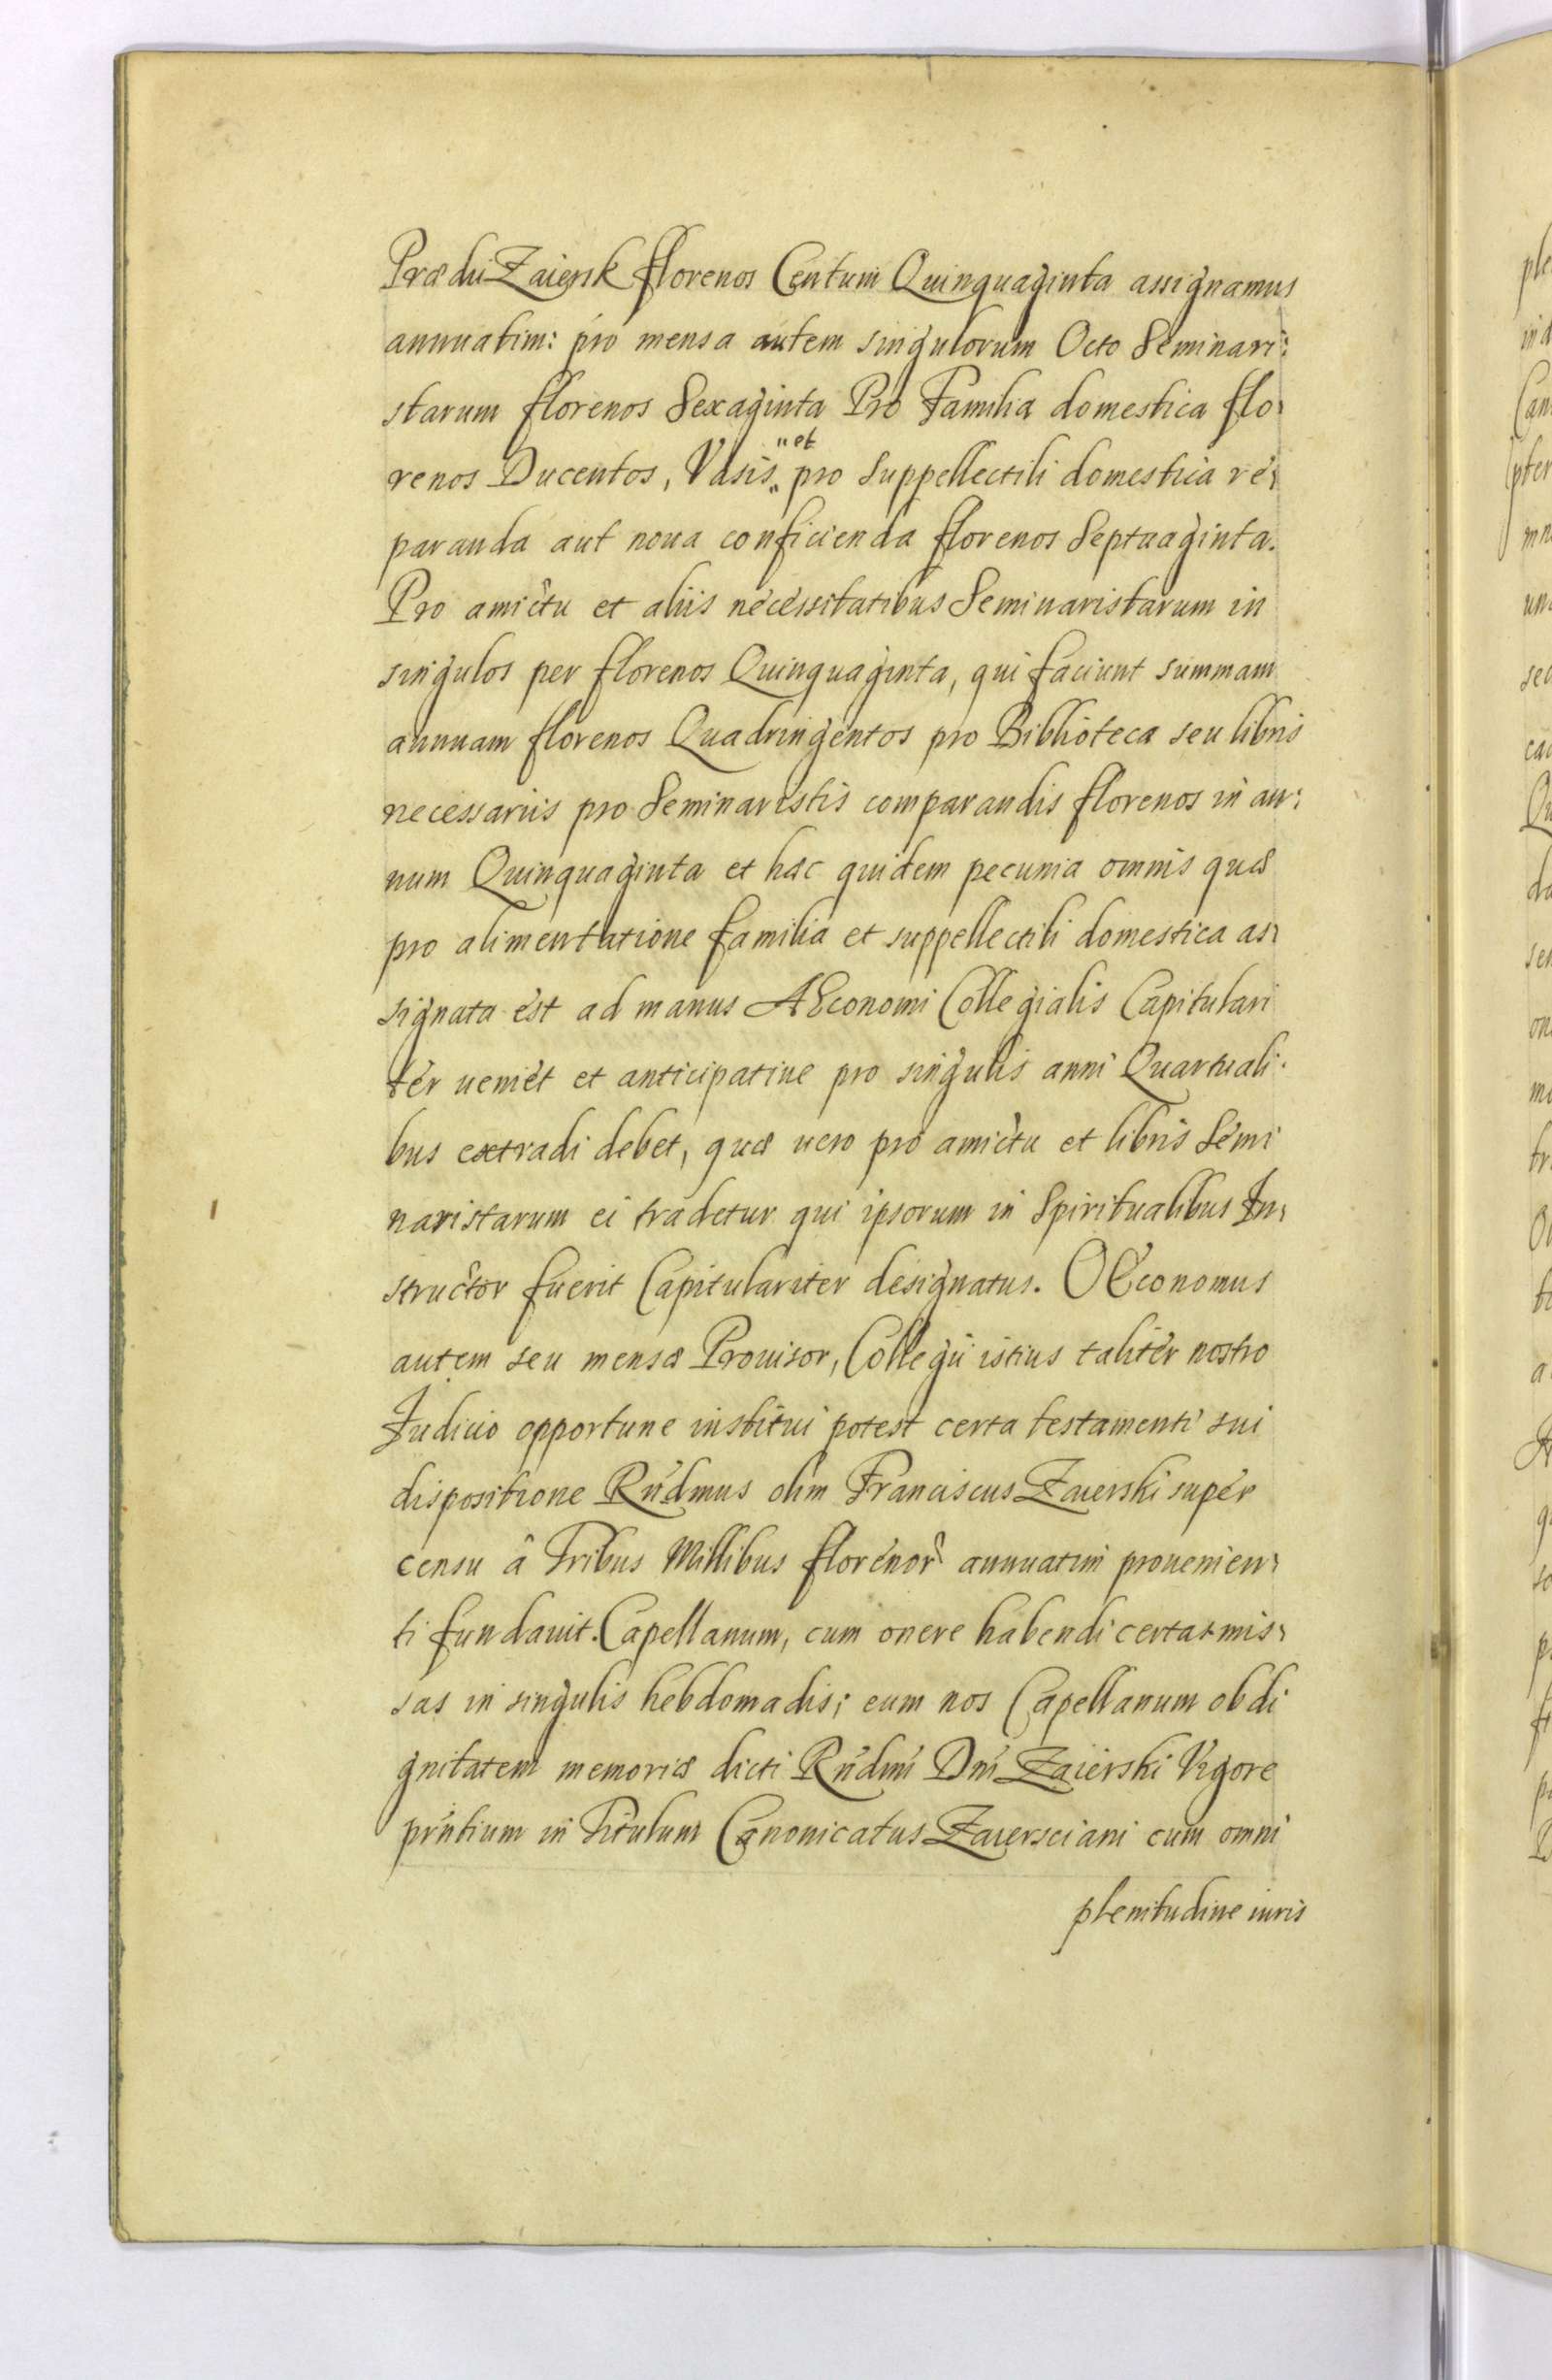 Prædii Zaiersk florenos Centum Quinquaginta assignamus
annuatim: pro mensa autem singulorum Octo Seminari:
starum florenos Sexaginta Pro Familia domestica flo,
renos Ducentos, Vasis „et pro suppellectili domestica re,
paranda aut noua conficienda florenos Septuaginta.
Pro amictu et aliis necessitatibus Seminaristarum in
singulos per florenos Quinquaginta, qui faciunt summam
annuam florenos Quadringentos pro Biblioteca seu libris
necessariis pro Seminaristis comparandis florenos in an:
num Quinquaginta et hæc quidem pecunia omnis quæ
pro alimentatione familia et suppellectili domestica as,
signata est ad manus AEconomi Collegialis Capitulari
ter ueniet et anticipatiue pro singulis anni Quartuali.
bus extradi debet, quæ uero pro amictu et libris Semi
naristarum ei tradetur qui ipsorum in Spiritualibus In,
structor fuerit Capitulariter designatus. OEconomus
autem seu mensæ Prouisor, Collegii istius taliter nostro
Iudicio opportune institui potest certa testamenti sui
dispositione Rndmus olim Franciscus Zaierski super
censu â Tribus Millibus florenor annuatim prouenien,
ti fundauit. Capellanum, cum onere habendi certas mis,
sas in singulis hebdomadis; eum nos Capellanum ob di
gnitatem memoriæ dicti Rndmi Dni Zaierski Vigore
prntium in Titulum Canonicatus Zaiersciani cum omni
plenitudine iuris